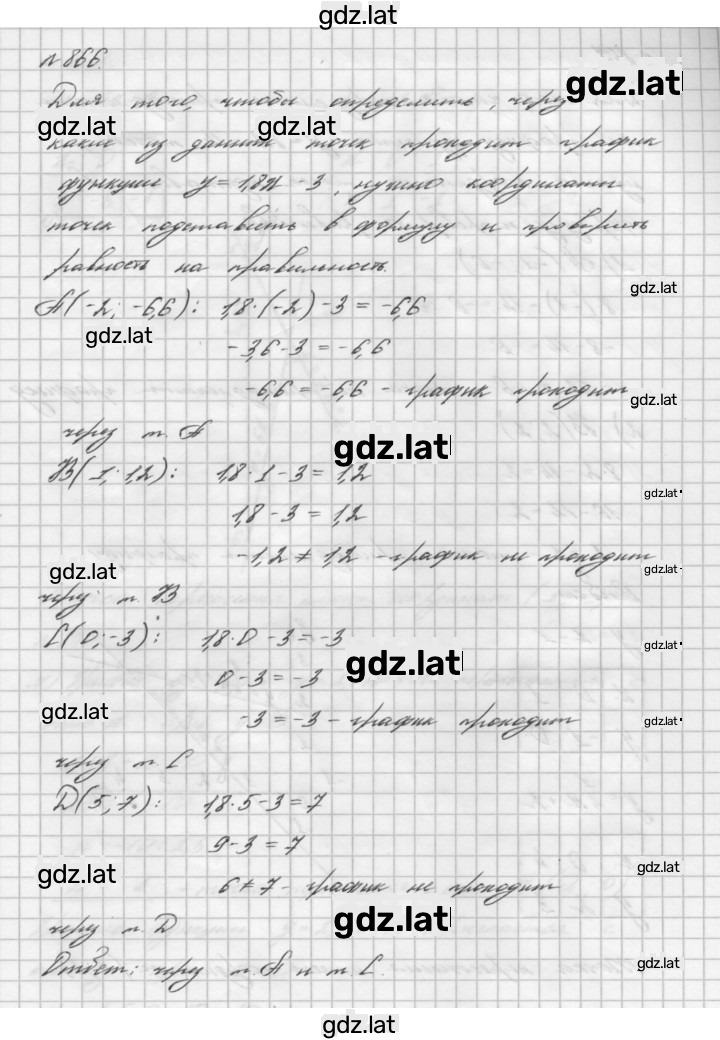 gdz.lat
№866.
Для того, чтобы определить, через
gdz.lat
gdz.lat gdz.lat
какие из данных точек проходит график
функции y = 1,8x - 3, нужно координаты
точек подставить в формулу и проверить
равность на правильность.
gdz.lat
A(-2; -6,6): 1,8·(-2) - 3 = -6,6
gdz.lat
-3,6 - 3 = -6,6
-6,6 = -6,6 - график проходит
gdz.lat
через т. A
gdz.lat
B(1; 1,2): 1,8·1 - 3 = 1,2
gdz.lat
1,8 - 3 = 1,2
-1,2 ≠ 1,2 - график не проходит
gdz.lat
gdz.lat
через т. B
C(0; -3): 1,8·0 - 3 = -3
gdz.lat
gdz.lat
0 - 3 = -3
gdz.lat
-3 = -3 - график проходит
gdz.lat
через т. C
D(5; 7): 1,8·5 - 3 = 7
9 - 3 = 7
gdz.lat
gdz.lat
6 ≠ 7 - график не проходит
gdz.lat
через т. D
Ответ: через т. A и т. C.
gdz.lat
gdz.lat